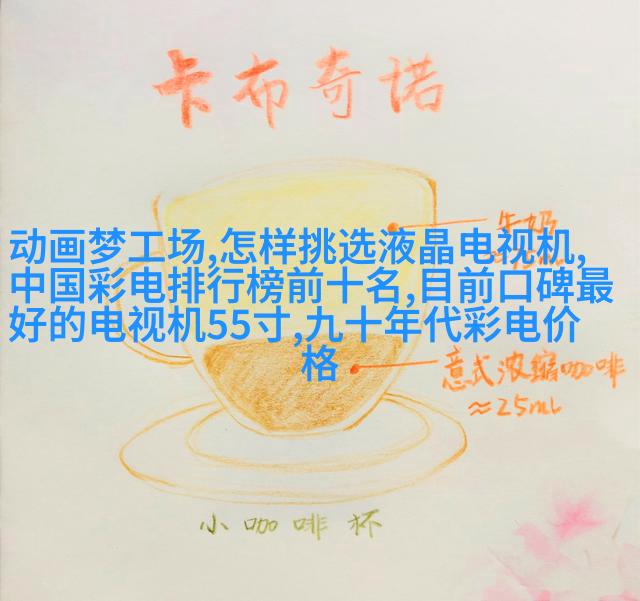 卡布奇诺
牛奶
动画梦工场,怎样挑选液晶电视机,
中国彩电排行榜前十名,目前口碑最
好的电视机55寸,九十年代彩电价
格
意式浓缩咖啡
≈25ml
小咖啡杯